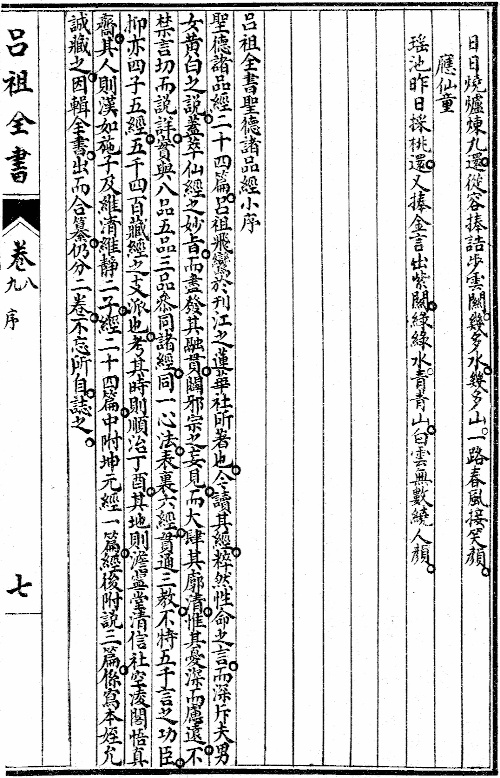 日日燒爐煉九還。從容捧詰步雲關。幾多水。幾多山。一路春風接笑顏。
應仙童
瑤池昨日採桃還。又捧金言出紫關。綠綠水。青青山。白雲無數繞人顏。
呂祖全書聖德諸品經小序
聖德諸品經二十四篇。呂祖飛鸞於刊江之蓮華社所著也。今讀其經。粹然性命之言。而深斥夫男
女黃白之說。蓋萃仙經之妙旨。而盡發其融貫。闢邪宗之妄見。而大肆其廓清。惟其憂深而慮遠。不
禁言切而說詳。實與八品五品三品參同諸經。同一心法。表裏六經。貫通三教。不特五千言之功臣。
抑亦四子五經。五千四百藏經之支派也。考其時則順治丁酉。其地則澹靈堂清信社空凌閣悟真
齋。其人則漢如施子及維清維靜二子。經二十四篇。中附坤元經一篇。經後附說三篇。係寫本。姪允
誠藏之。因輯全書。出而合纂。仍分二卷。不忘所自。誌之。
呂祖全書
卷八九
序
七